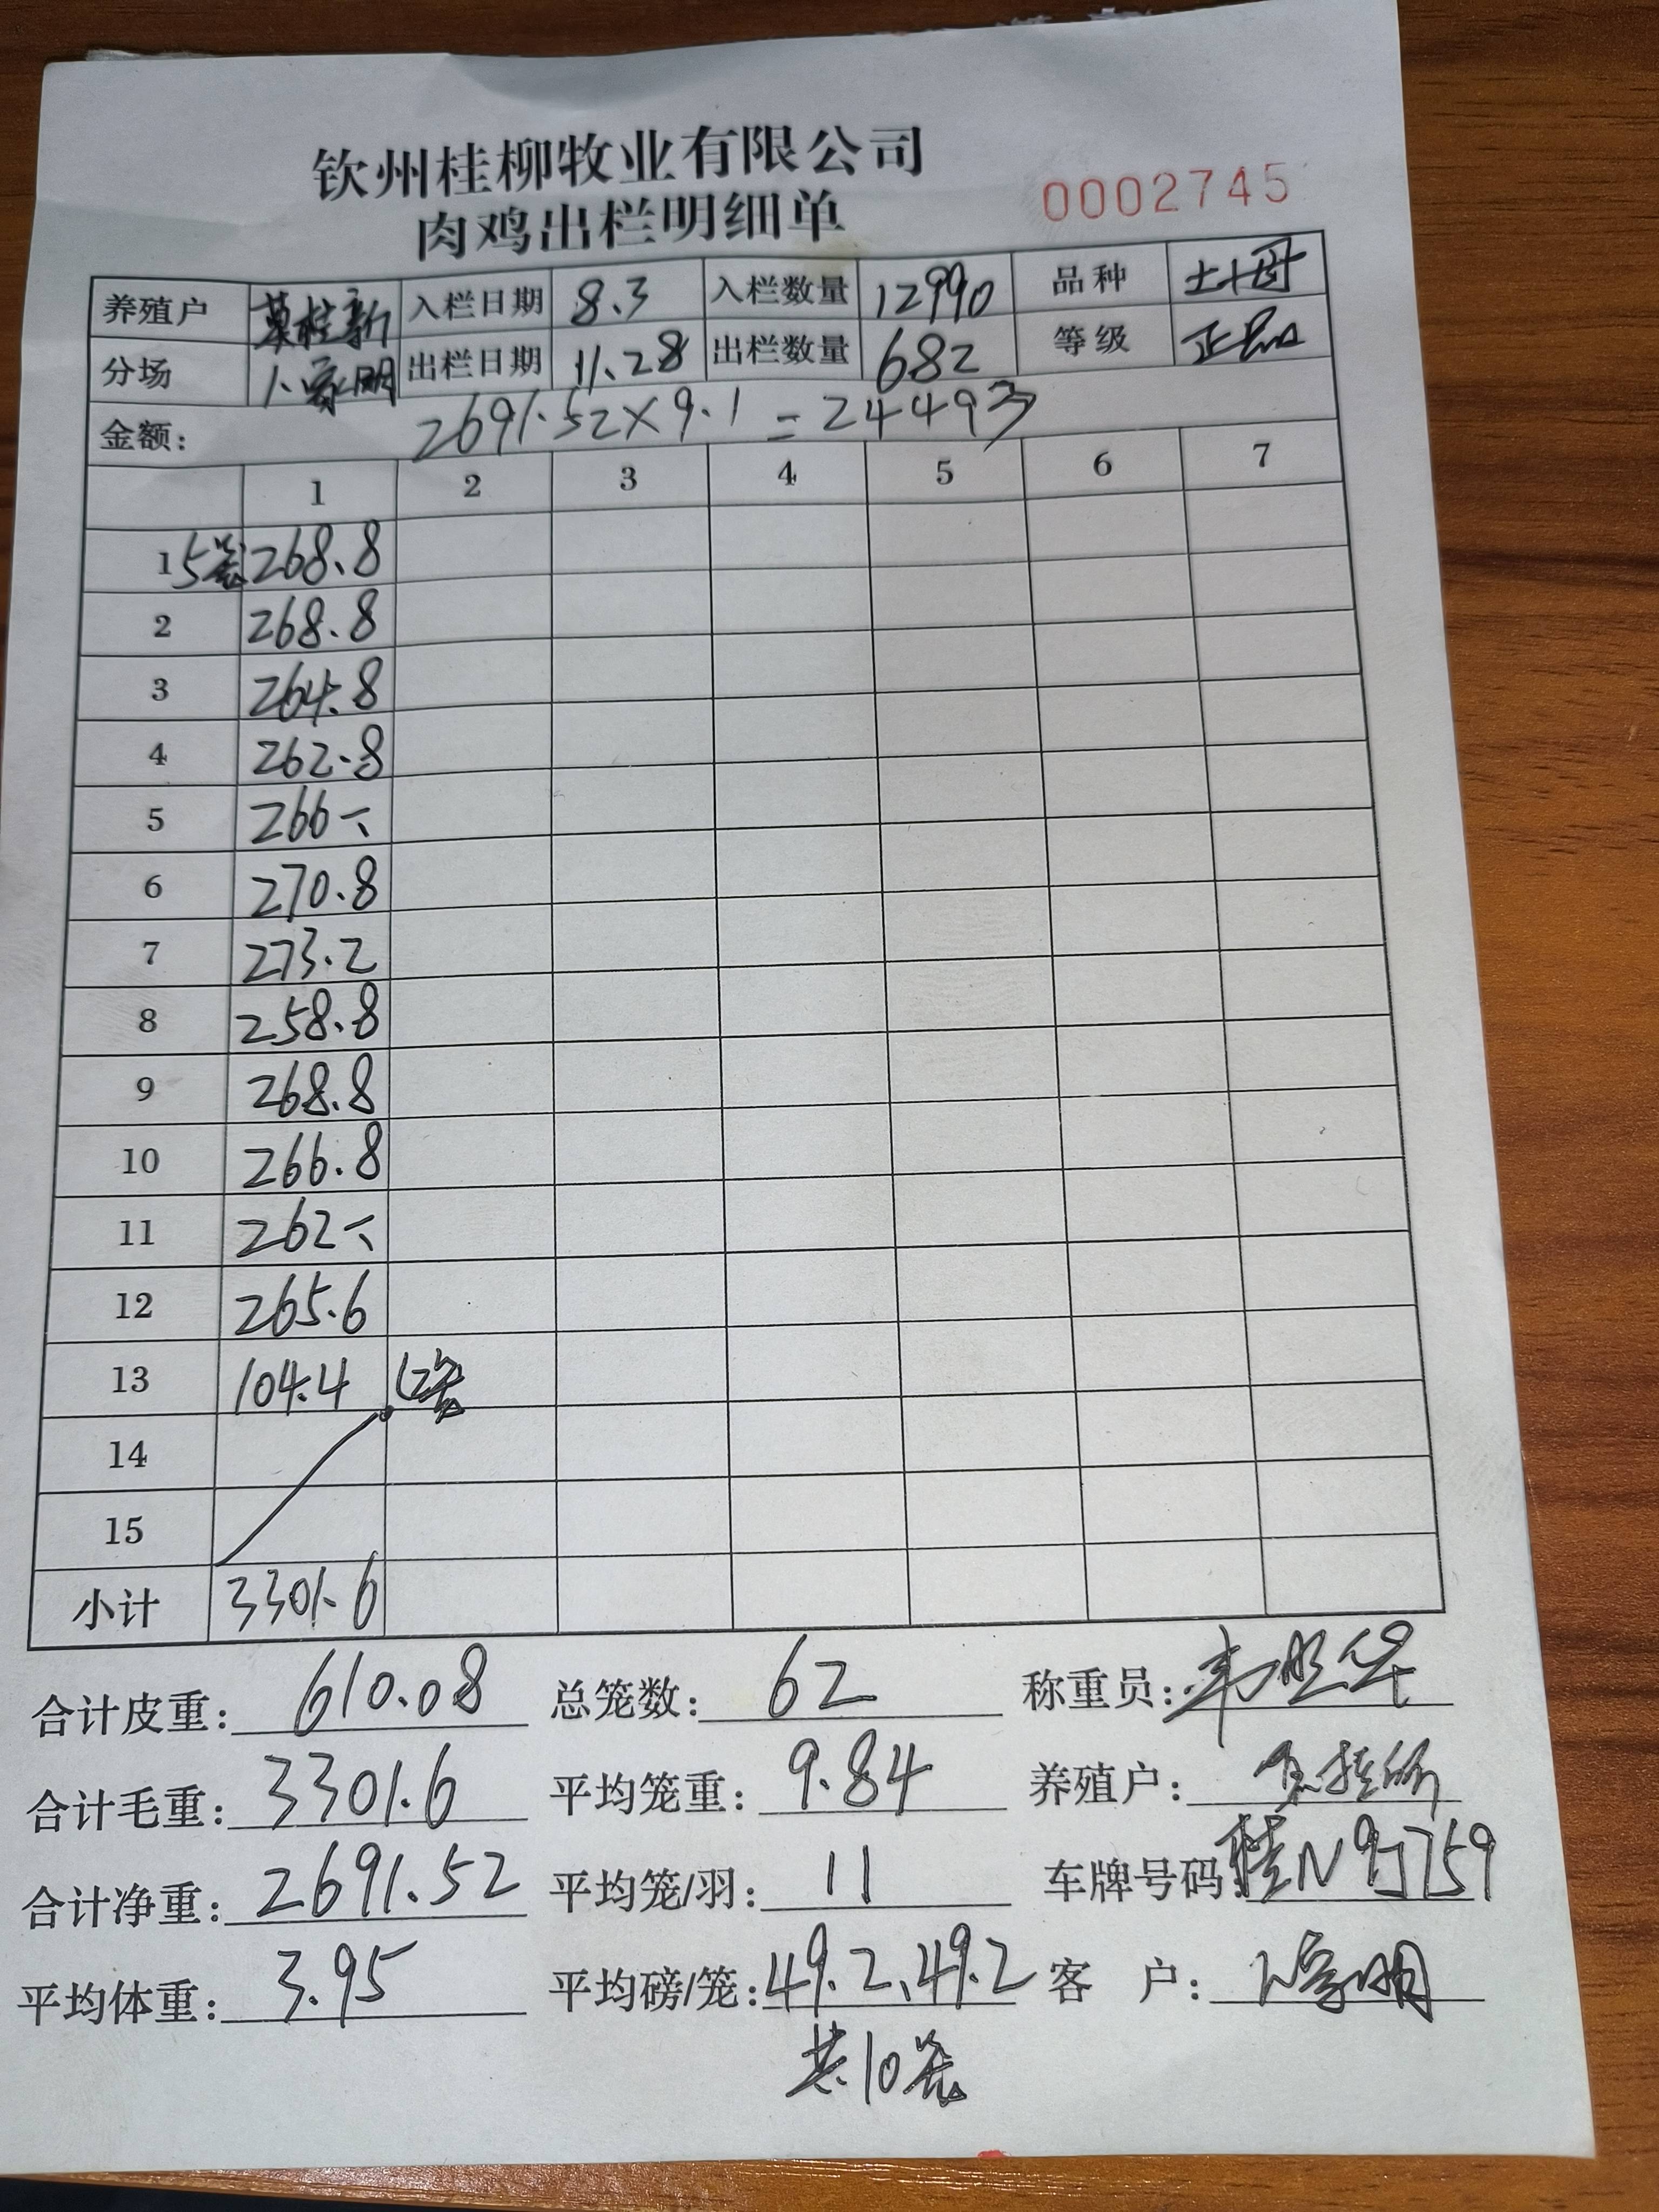 钦州桂柳牧业有限公司
肉鸡出栏明细单 0002745
养殖户 入栏日期 8.3 入栏数量 12990 品种 土1母
分场 出栏日期 11.28 出栏数量 682 等级 正品
金额: 2691.52×9.1=24493
1 2 3 4 5 6 7
1 5笼 268.8
2 268.8
3 264.8
4 262.8
5 266
6 270.8
7 273.2
8 258.8
9 268.8
10 266.8
11 262
12 265.6
13 104.4
14
15
小计 3301.6
合计皮重: 610.08 总笼数: 62 称重员:
合计毛重: 3301.6 平均笼重: 9.84 养殖户:
合计净重: 2691.52 平均笼/羽: 11 车牌号码 桂N9J759
平均体重: 3.95 平均磅/笼: 49.2、49.2 客 户:
共10笼